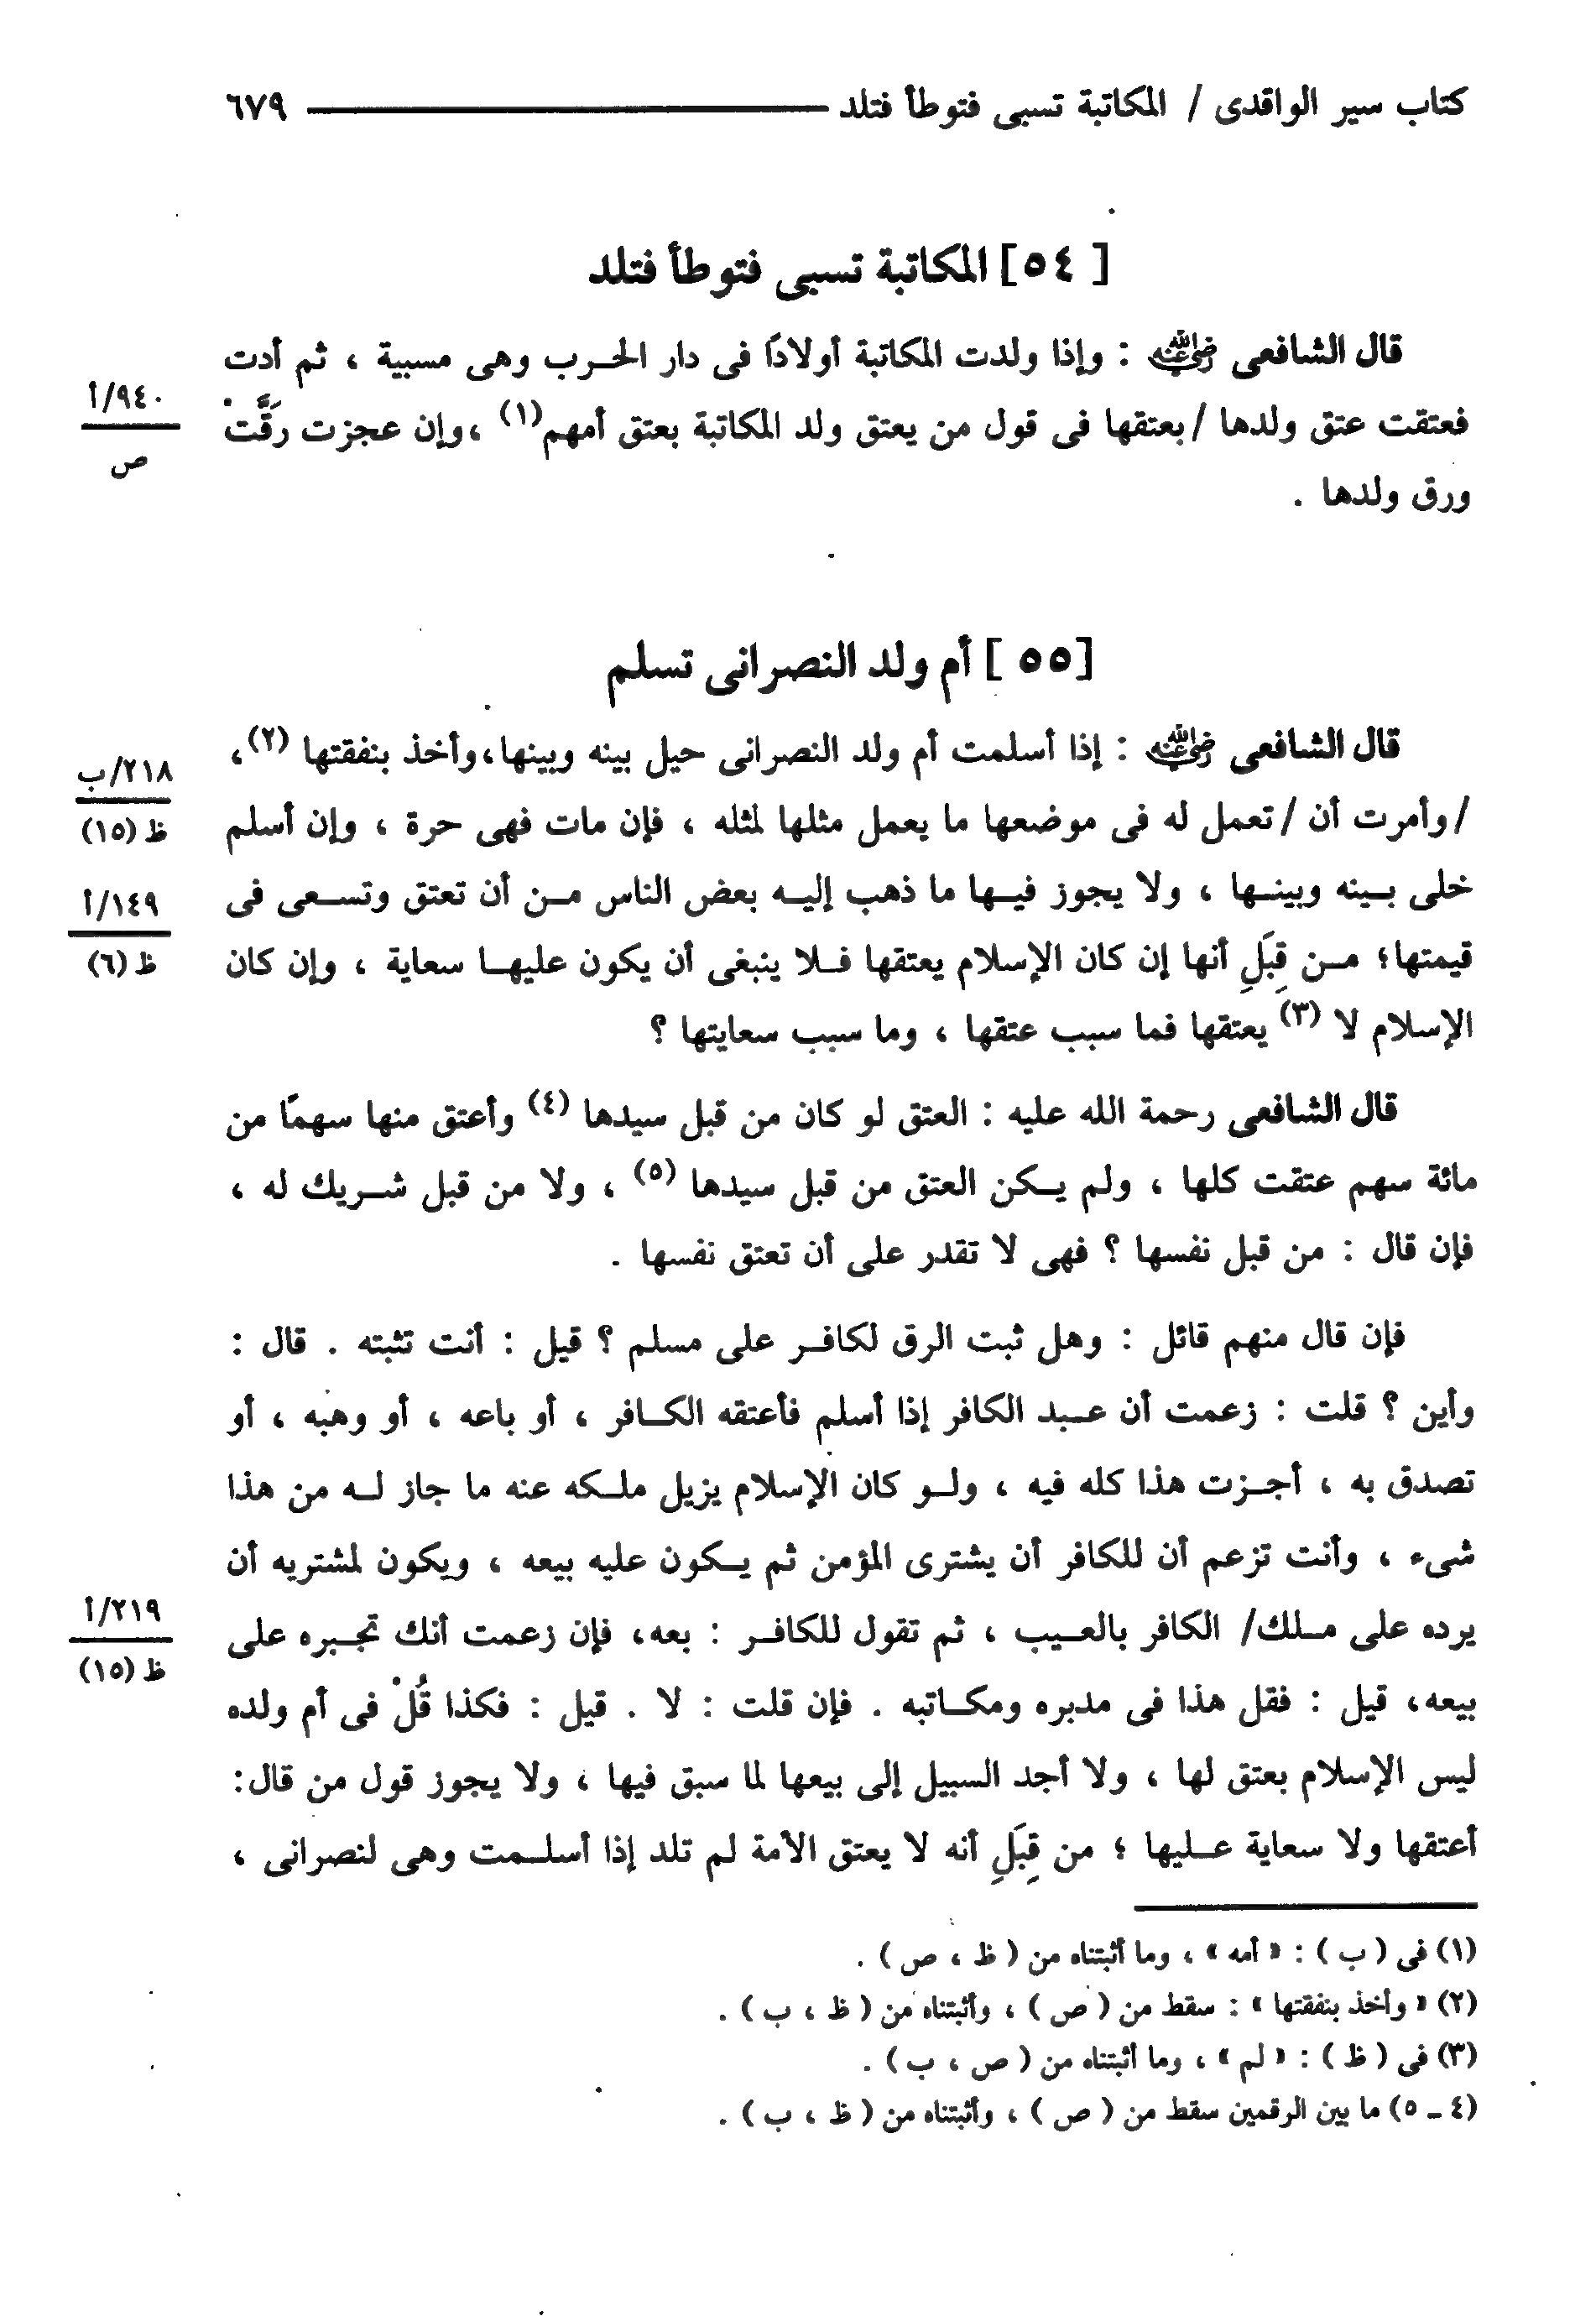 كتاب سير الواقدى / المكاتبة تسبى فتوطأ فتلد ـــــــ ٦٧٩
[ ٥٤ ] المكاتبة تسبى فتوطأ فتلد
قال الشافعى رضي الله عنه : وإذا ولدت المكاتبة أولادًا فى دار الحرب وهى مسبية ، ثم أدت
٩٤٠/أ
ص
فعتقت عتق ولدها / بعتقها فى قول من يعتق ولد المكاتبة بعتق أمهم (١) ، وإن عجزت رَقَّتْ
ورق ولدها .
[ ٥٥ ] أم ولد النصرانى تسلم
قال الشافعى رضي الله عنه : إذا أسلمت أم ولد النصرانى حيل بينه وبينها، وأخذ بنفقتها (٢)،
٢١٨/ب
ظ (١٥)
/ وأمرت أن / تعمل له فى موضعها ما يعمل مثلها لمثله ، فإن مات فهى حرة ، وإن أسلم
١٤٩/أ
ظ (٦)
خلى بينه وبينها ، ولا يجوز فيها ما ذهب إليه بعض الناس من أن تعتق وتسعى فى
قيمتها؛ من قِبَلِ أنها إن كان الإسلام يعتقها فلا ينبغى أن يكون عليها سعاية ، وإن كان
الإسلام لا (٣) يعتقها فما سبب عتقها ، وما سبب سعايتها ؟
قال الشافعى رحمة الله عليه : العتق لو كان من قبل سيدها (٤) وأعتق منها سهمًا من
مائة سهم عتقت كلها ، ولم يكن العتق من قبل سيدها (٥) ، ولا من قبل شريك له ،
فإن قال : من قبل نفسها ؟ فهى لا تقدر على أن تعتق نفسها .
فإن قال منهم قائل : وهل ثبت الرق لكافر على مسلم ؟ قيل : أنت تثبته . قال :
وأين ؟ قلت : زعمت أن عبد الكافر إذا أسلم فأعتقه الكافر ، أو باعه ، أو وهبه ، أو
تصدق به ، أجزت هذا كله فيه ، ولو كان الإسلام يزيل ملكه عنه ما جاز له من هذا
شىء ، وأنت تزعم أن للكافر أن يشترى المؤمن ثم يكون عليه بيعه ، ويكون لمشتريه أن
٢١٩/أ
ظ (١٥)
يرده على ملك/ الكافر بالعيب ، ثم تقول للكافر : بعه، فإن زعمت أنك تجبره على
بيعه، قيل : فقل هذا فى مدبره ومكاتبه . فإن قلت : لا . قيل : فكذا قُلْ فى أم ولده
ليس الإسلام بعتق لها ، ولا أجد السبيل إلى بيعها لما سبق فيها ، ولا يجوز قول من قال:
أعتقها ولا سعاية عليها ؛ من قِبَلِ أنه لا يعتق الأمة لم تلد إذا أسلمت وهى لنصرانى ،
(١) فى ( ب ) : « أمه » ، وما أثبتناه من ( ظ ، ص ) .
(٢) « وأخذ بنفقتها » : سقط من ( ص ) ، وأثبتناه من ( ظ ، ب ) .
(٣) فى ( ظ ) : « لم » ، وما أثبتناه من ( ص ، ب ) .
(٤ ـ ٥) ما بين الرقمين سقط من ( ص ) ، وأثبتناه من ( ظ ، ب ) .